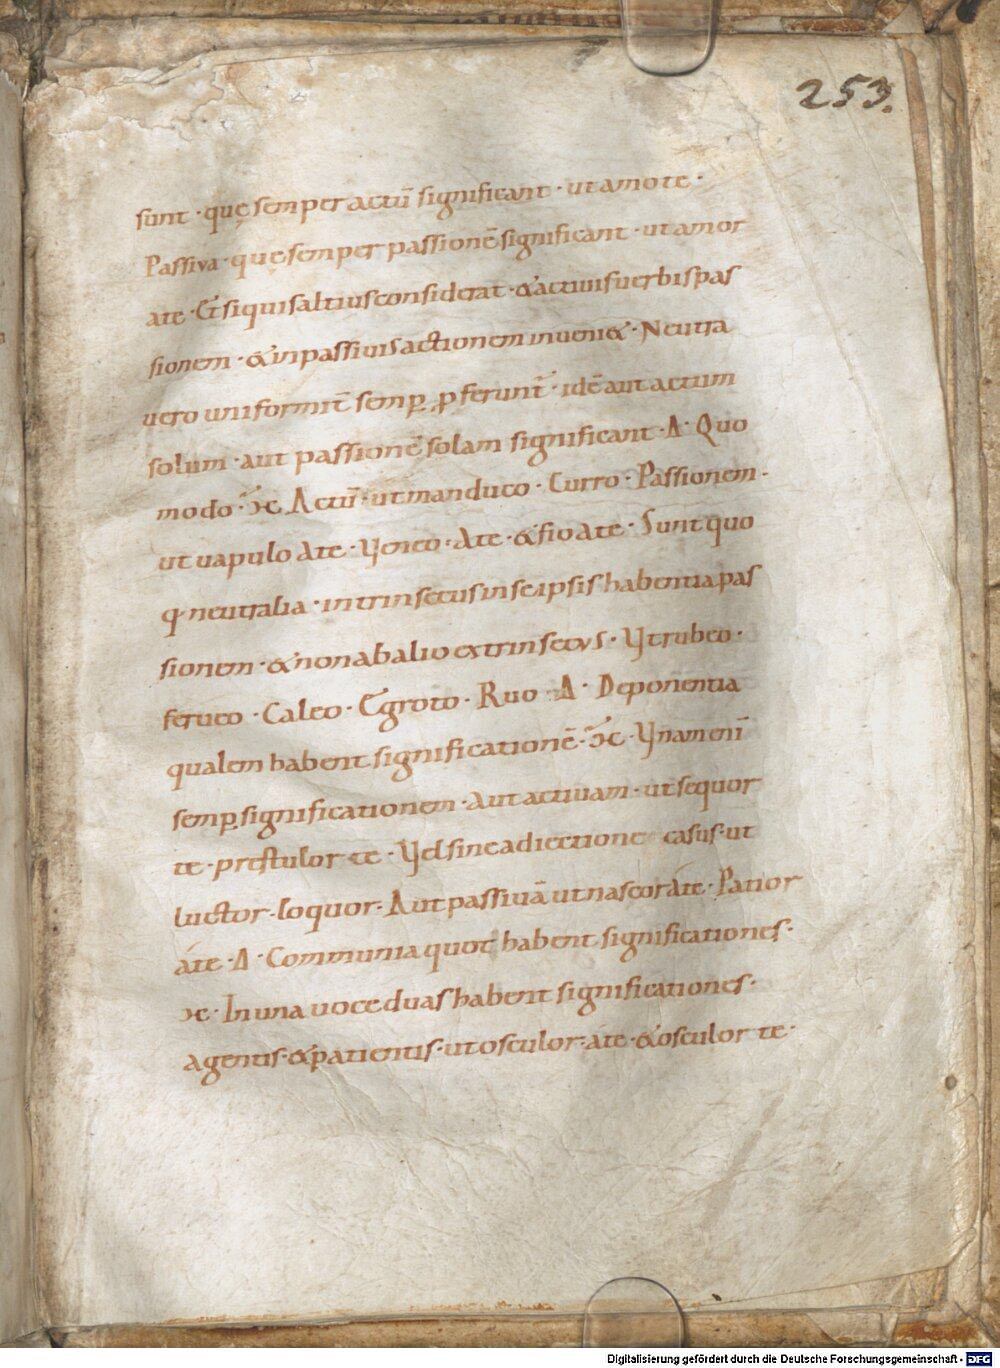 253.
sunt · quę semper actū significant · ut amo te ·
Passiva · que semper passionē significant · ut amor
a te · Et si quis altius considerat · & activis verbis pas
sionem · & in passivis actionem inveni& · Neutra
vero uniformit̄ semꝑ ꝓferunt̄ · idē aut actum
solum · aut passionē solam significant · Δ · Quo
modo · M̄ · Actū · ut manduco · Curro · Passionem ·
ut vapulo a te · Veneo · a te · & fio a te · Sunt quo
q; neutralia · intrinsecus in se ipsis habentia pas
sionem · & non ab alio extrinsecus · Vt rubeo ·
ferveo · Caleo · Egroto · Ruo · Δ · Deponentia
qualem habent significationē · M̄ · Vnam eni̅
semꝑ significationem · aut activam · ut sequor
te · prestulor te · Vel sine adiectione casus · ut
luctor · loquor · Aut passivā ut nascor a te · Patior
a te · Δ · Communia quot habent significationes ·
M · In una voce duas habent significationes ·
agentis · & patientis · ut osculor · a te · & osculor te ·
Digitalisierung gefördert durch die Deutsche Forschungsgemeinschaft - DFG